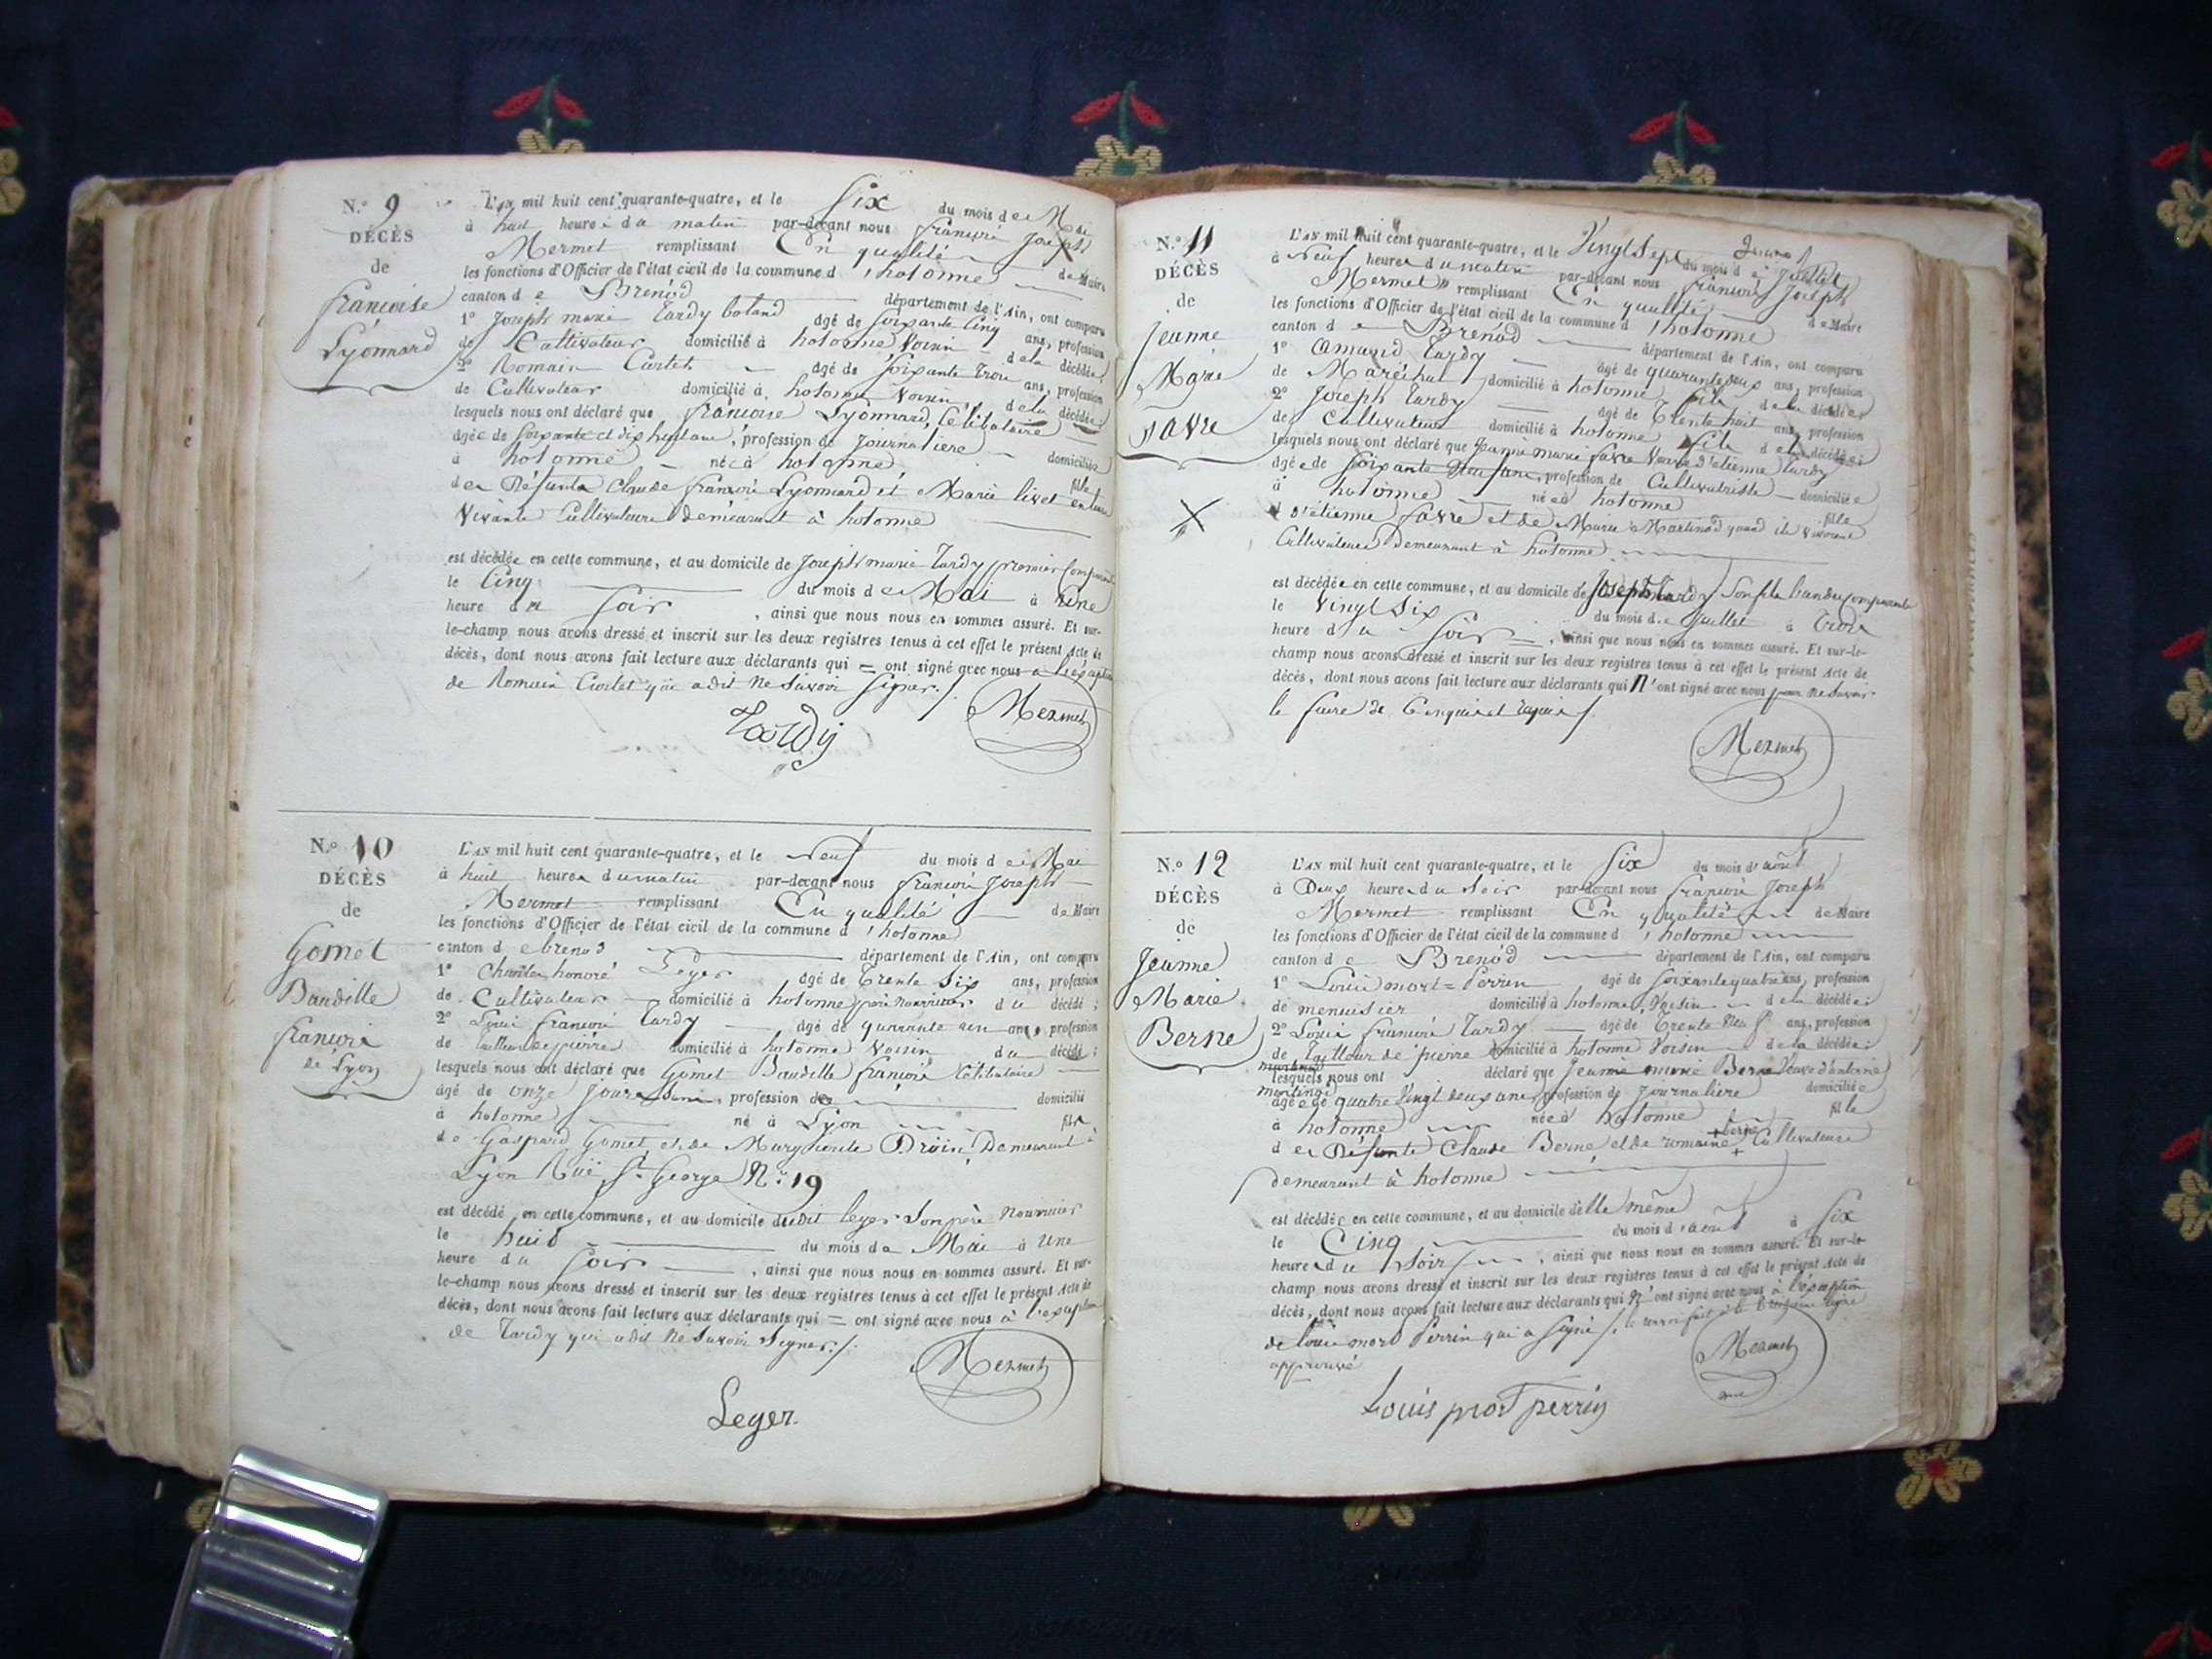 N.° 9
DÉCÈS
de
françoise
Lyonnard
L'AN mil huit cent quarante-quatre, et le Six du mois de Mai
à huit heures du matin par-devant nous françois Joseph
Mermet remplissant En qualité de Maire
les fonctions d'Officier de l'état civil de la commune d'hotonne
canton de Brenod département de l'Ain, ont comparu
1° Joseph marie Tardy botand âgé de Soixante Cinq ans, profession
de Cultivateur domicilié à hotonne Voisin de la décédée;
2° Romain Cartet âgé de Soixante Trois ans, profession
de Cultivateur domicilié à hotonne Voisin de la décédée;
lesquels nous ont déclaré que françoise Lyonnard, Célibataire
âgée de Soixante et dix huit ans, profession de Journaliere domiciliée
à hotonne née à hotonne fille
des Défunts Claude françois Lyonnard et Marie livet en leur
Vivante Cultivateurs demeurant à hotonne
est décédée en cette commune, et au domicile de Joseph marie Tardy premier Comparant
le Cinq du mois de Mai à Une
heure du Soir, ainsi que nous nous en sommes assuré. Et sur-
le-champ nous avons dressé et inscrit sur les deux registres tenus à cet effet le présent Acte de
décès, dont nous avons fait lecture aux déclarants qui = ont signé avec nous à l'exception
de Romain Cartet qui a dit ne Savoir Signer./.
Tardy Mermet
N.° 10
DÉCÈS
de
Gomet
Baudille
françois
de Lyon
L'AN mil huit cent quarante-quatre, et le neuf du mois de Mai
à huit heures du matin par-devant nous françois Joseph
Mermet remplissant En qualité de Maire
les fonctions d'Officier de l'état civil de la commune d'hotonne
canton de brenod département de l'Ain, ont comparu
1° Charles honoré Leger âgé de Trente Six ans, profession
de Cultivateur domicilié à hotonne père Nourricier du décédé;
2° Louis françois Tardy âgé de quarante un ans, profession
de tailleur de pierre domicilié à hotonne Voisin du décédé;
lesquels nous ont déclaré que Gomet Baudille françois Célibataire
âgé de onze Jours, profession de domicilié
à hotonne né à Lyon fils
de Gaspard Gomet et de Marguerite Droin Demeurant à
Lyon Rue St George N.° 19
est décédé en cette commune, et au domicile dudit leger Son père Nourricier
le huit du mois de Mai à Une
heure du Soir, ainsi que nous nous en sommes assuré. Et sur-
le-champ nous avons dressé et inscrit sur les deux registres tenus à cet effet le présent Acte de
décès, dont nous avons fait lecture aux déclarants qui = ont signé avec nous à l'exception
de Tardy qui a dit Ne Savoir Signer./.
Mermet
Leger
N.° 11
DÉCÈS
de
Jeanne
Marie
favre
L'AN mil huit cent quarante-quatre, et le Vingt Sept du mois de Juillet
à Neuf heures du matin par-devant nous françois Joseph
Mermet remplissant En qualité de Maire
les fonctions d'Officier de l'état civil de la commune d'hotonne
canton de Brenod département de l'Ain, ont comparu
1° Amand Tardy âgé de quarante deux ans, profession
de Maréchal domicilié à hotonne fils de la décédée;
2° Joseph Tardy âgé de Trente huit ans, profession
de Cultivateur domicilié à hotonne fils de la décédée;
lesquels nous ont déclaré que Jeanne marie favre Veuve d'etienne Tardy
âgée de Soixante Neuf ans, profession de Cultivatrice domiciliée
à hotonne née à hotonne fille
d'étienne favre et de Marie Martinod quand ils vivoient
Cultivateurs Demeurant à hotonne
est décédée en cette commune, et au domicile de Joseph Tardy Son fils l'un des Comparants
le Vingt Six du mois de Juillet à Trois
heure du Soir, ainsi que nous nous en sommes assuré. Et sur-le-
champ nous avons dressé et inscrit sur les deux registres tenus à cet effet le présent Acte de
décès, dont nous avons fait lecture aux déclarants qui n'ont signé avec nous pour ne Savoir
le faire de Ce requis
Mermet
N.° 12
DÉCÈS
de
Jeanne
Marie
Berne
L'AN mil huit cent quarante-quatre, et le Six du mois d'août
à Deux heures du Soir par-devant nous françois Joseph
Mermet remplissant En qualité de Maire
les fonctions d'Officier de l'état civil de la commune d'hotonne
canton de Brenod département de l'Ain, ont comparu
1° Louis mort=Perrin âgé de Soixante quatre ans, profession
de menuisier domicilié à hotonne Voisin de la décédée;
2° Louis françois Tardy âgé de Trente Neuf ans, profession
de Tailleur de pierre domicilié à hotonne Voisin de la décédée;
lesquels nous ont déclaré que Jeanne marie Berne Veuve d'antoine
âgée de quatre Vingt deux ans, profession de Journalière domiciliée
à hotonne née à hotonne fille
des Défunts Claude Berne et de romaine berne Cultivateurs
demeurant à hotonne
est décédée en cette commune, et au domicile d'elle même
le Cinq du mois d'août à Six
heures du Soir, ainsi que nous nous en sommes assuré. Et sur-le-
champ nous avons dressé et inscrit sur les deux registres tenus à cet effet le présent Acte de
décès, dont nous avons fait lecture aux déclarants qui n'ont signé avec nous à l'exception
de louis mort Perrin qui a Signé ./. le renvoi fait à la ligne
approuvé
Mermet
Louis mort perrin